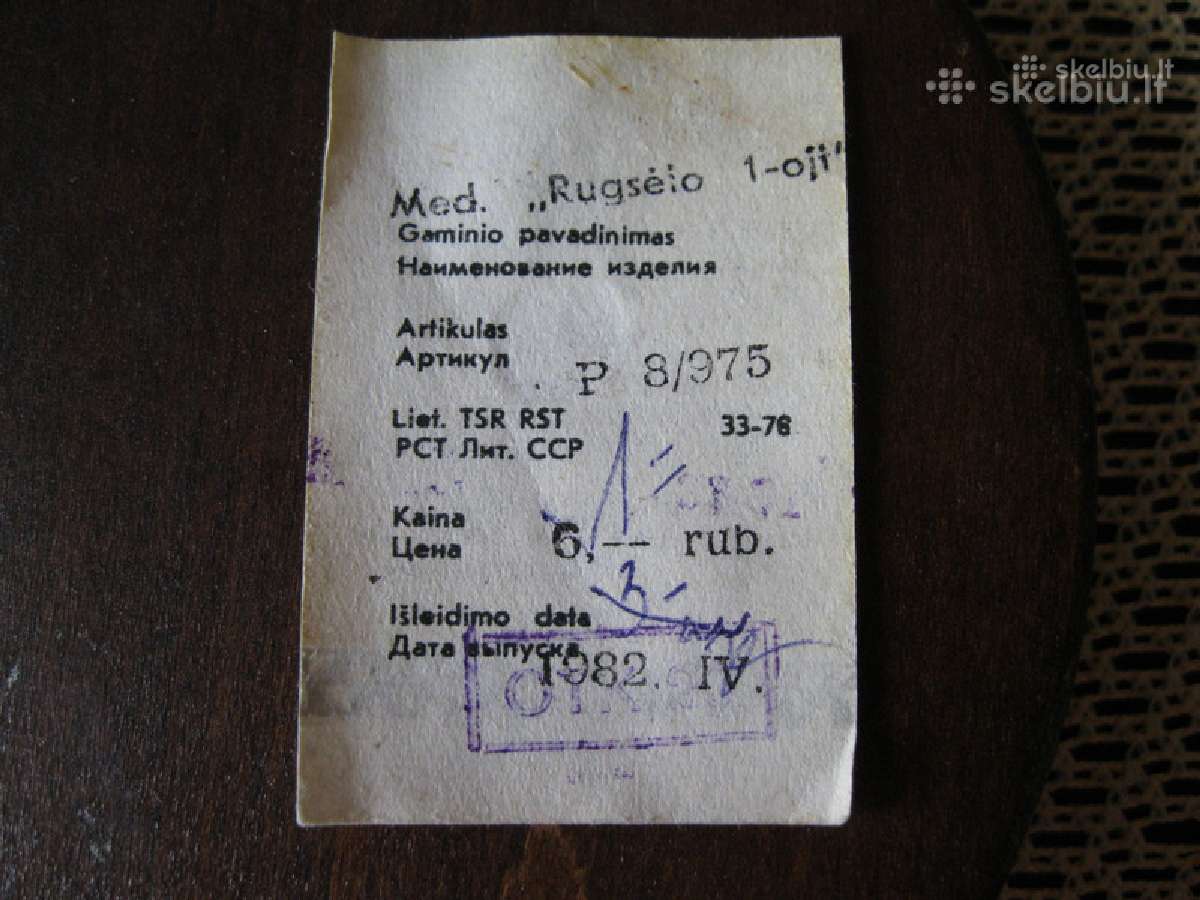 skelbiu.lt
skelbiu.lt
Med. „Rugsėjo 1-oji“
Gaminio pavadinimas
Наименование изделия
Artikulas
Артикул
P 8/975
Liet. TSR RST 33-78
РСТ Лит. ССР
Kaina
Цена
6,-- rub.
Išleidimo data
Дата выпуска
1982. IV.